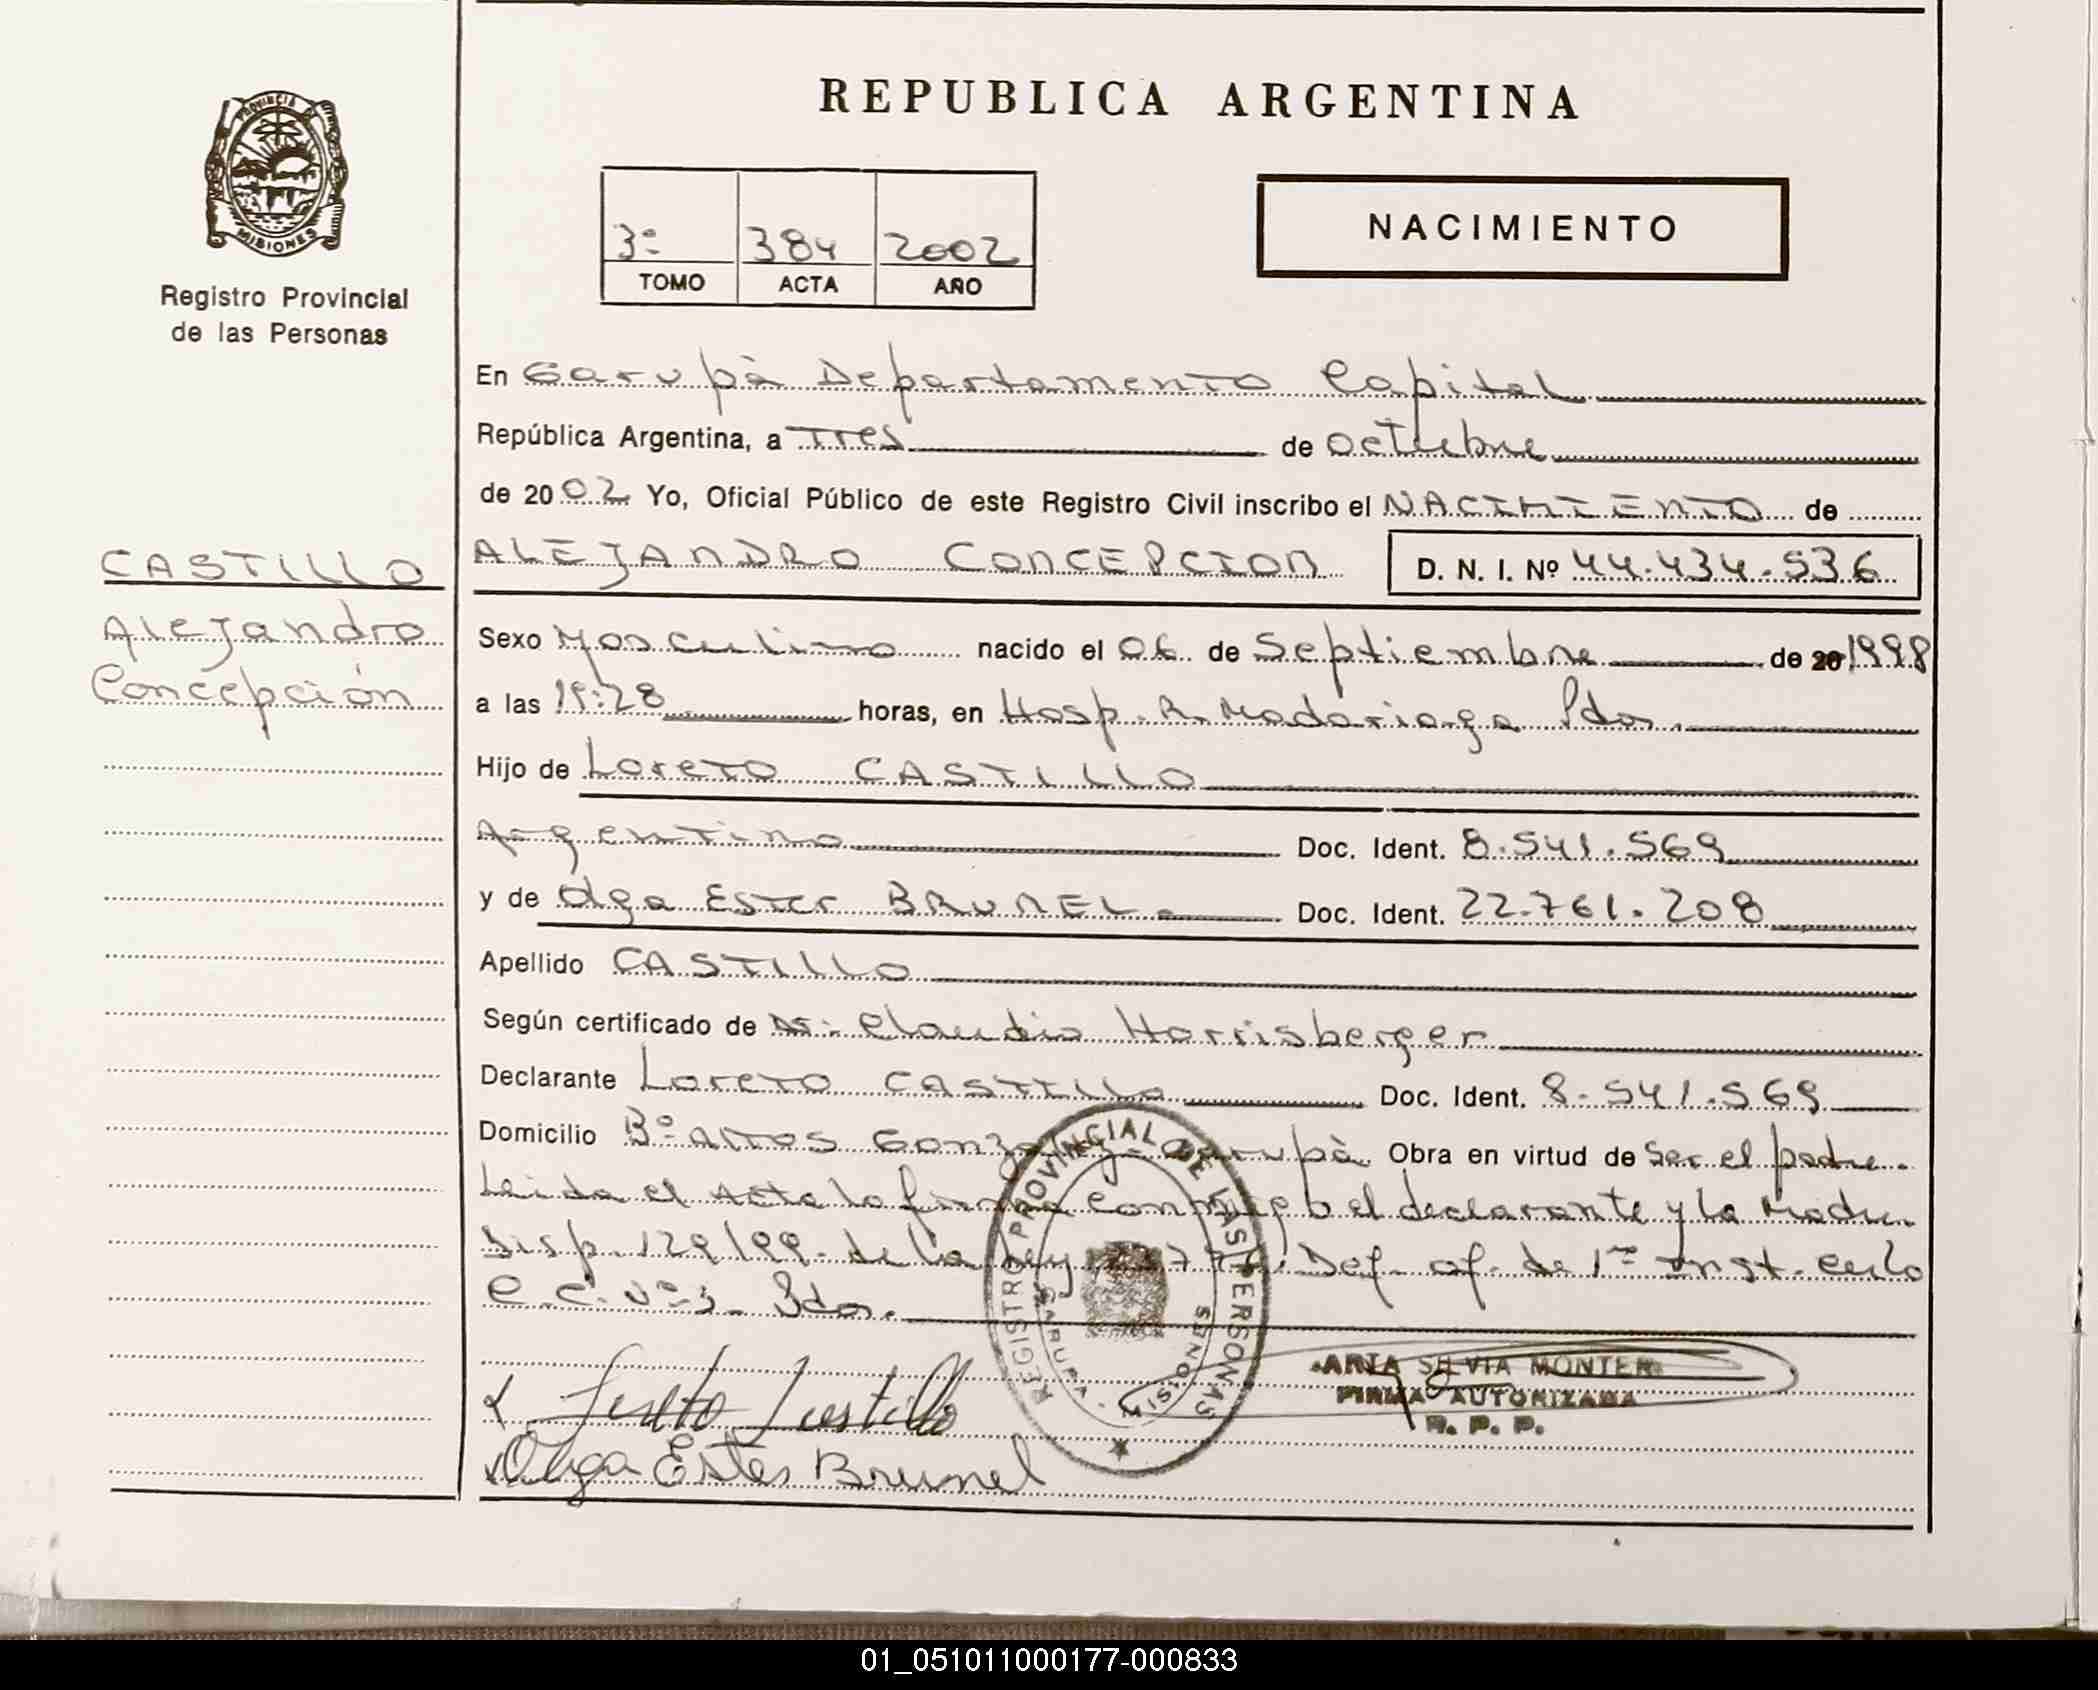 REPUBLICA ARGENTINA
PROVINCIA DE MISIONES
Registro Provincial
de las Personas
3º 384 2002
TOMO ACTA AÑO
NACIMIENTO
En Garupà Departamento Capital
República Argentina, a Tres de octubre
de 2002 Yo, Oficial Público de este Registro Civil inscribo el NACIMIENTO de
CASTILLO
Alejandro
Concepción
ALEJANDRO CONCEPCION D. N. I. Nº 44.434.536
Sexo Masculino nacido el 06 de Septiembre de 20 1998
a las 19:28 horas, en Hosp. R. Madariaga Pdas.
Hijo de Loreto CASTILLO
Argentino Doc. Ident. 8.541.569
y de Olga Ester BRUNEL Doc. Ident. 22.761.208
Apellido CASTILLO
Según certificado de Dr. Claudio Horrisberger
Declarante Loreto CASTILLO Doc. Ident. 8.541.569
Domicilio Bº Altos Gonzalez Garupà Obra en virtud de Ser el padre.
Leida el Acta la firma conmigo el declarante y la Madre.
Disp. 129/99. de la Ley Def. of. de 1ra Inst. en lo
C. C. Nº 3. Pdas.
Loreto Castillo
Olga Ester Brunel
REGISTRO PROVINCIAL DE LAS PERSONAS
GARUPA - MISIONES
ARIA SILVIA MONTER
FIRMA AUTORIZADA
R. P. P.
01_051011000177-000833